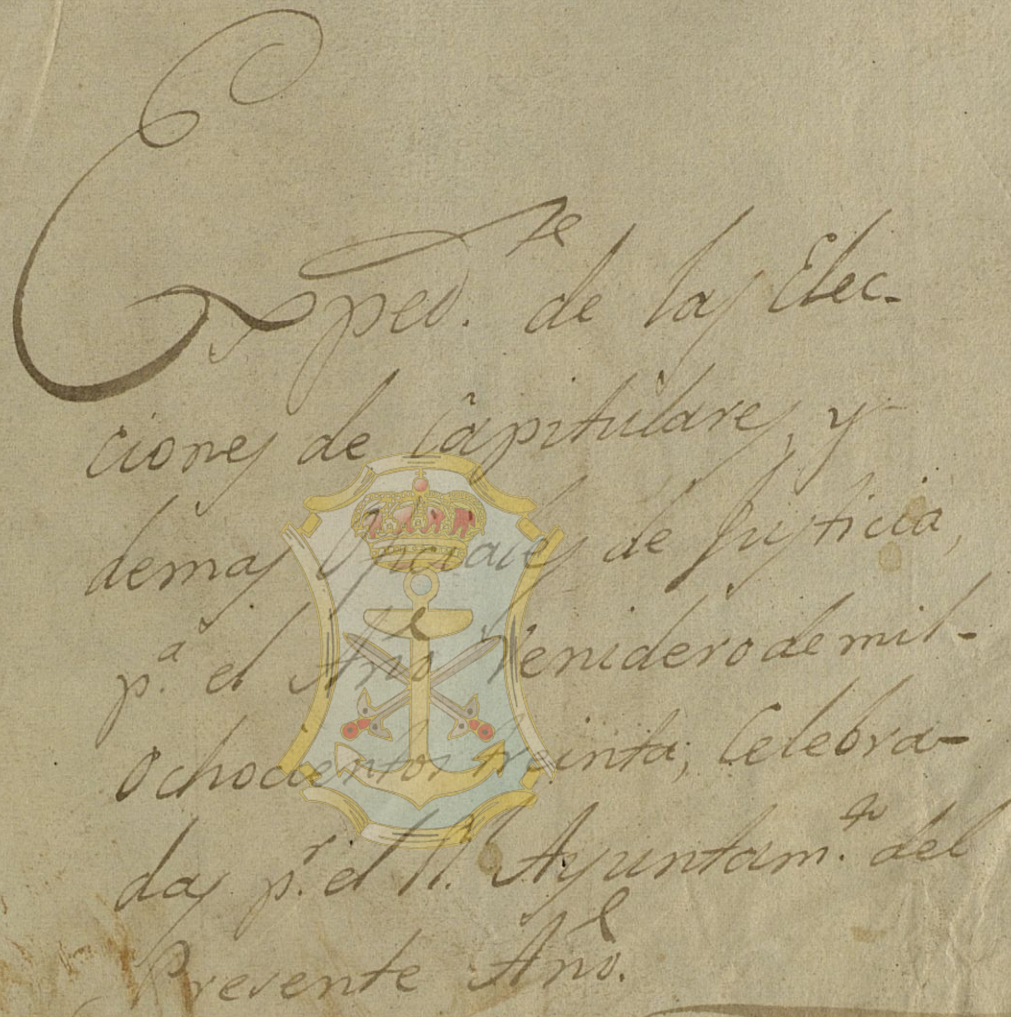 Exped.te de las Elec-
ciones de Capitulares, y
demas Oficiales de Justicia,
p.a el Año Venidero de mil
Ochocientos treinta, Celebra-
das p.r el Ayuntam.to del
Presente Año.